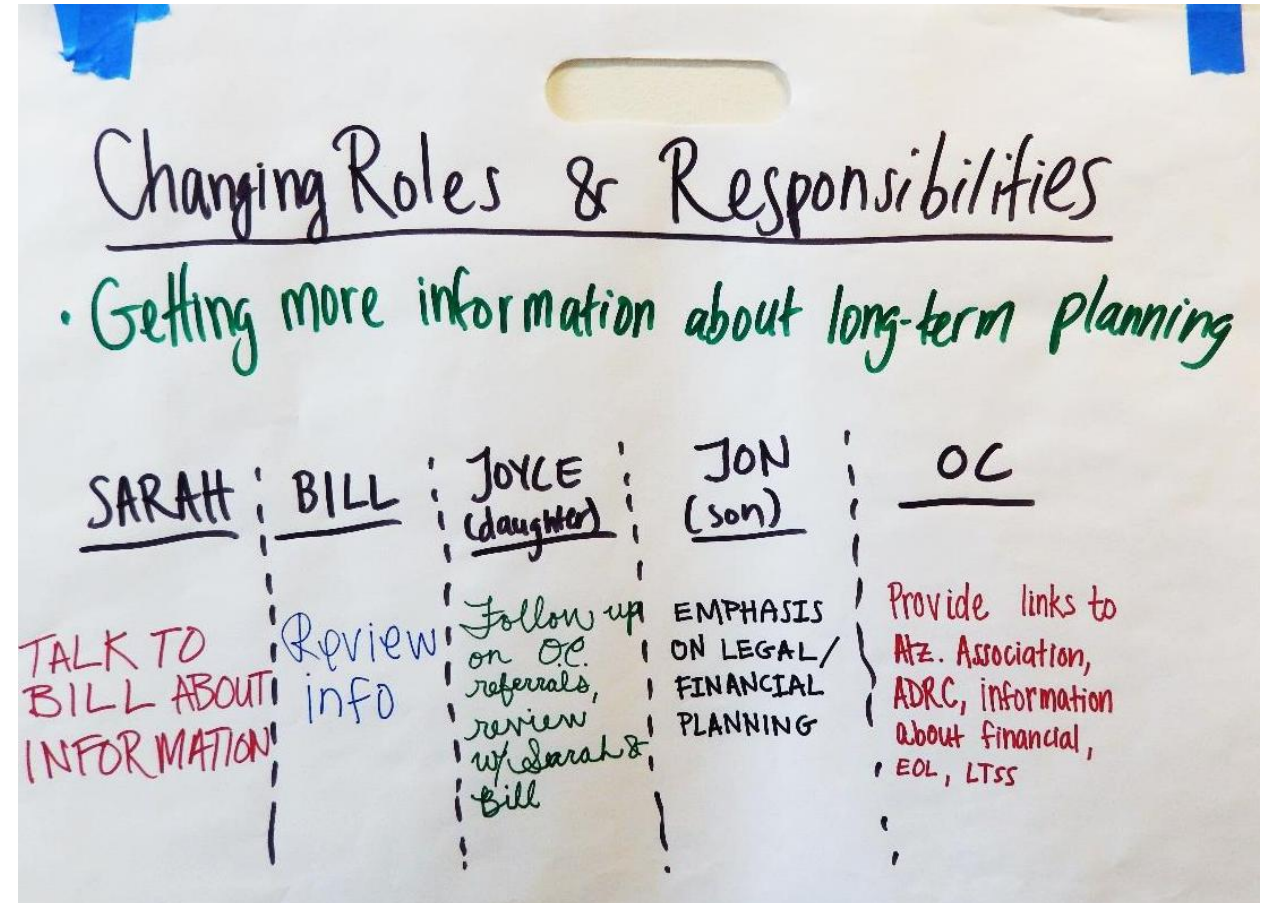 Changing Roles & Responsibilities
· Getting more information about long-term planning
SARAH
TALK TO
BILL ABOUT
INFORMATION
BILL
Review
info
JOYCE
(daughter)
Follow up
on O.C.
referrals,
review
w/ Sarah &
Bill
JON
(son)
EMPHASIS
ON LEGAL/
FINANCIAL
PLANNING
OC
Provide links to
Alz. Association,
ADRC, information
about financial,
EOL, LTSS